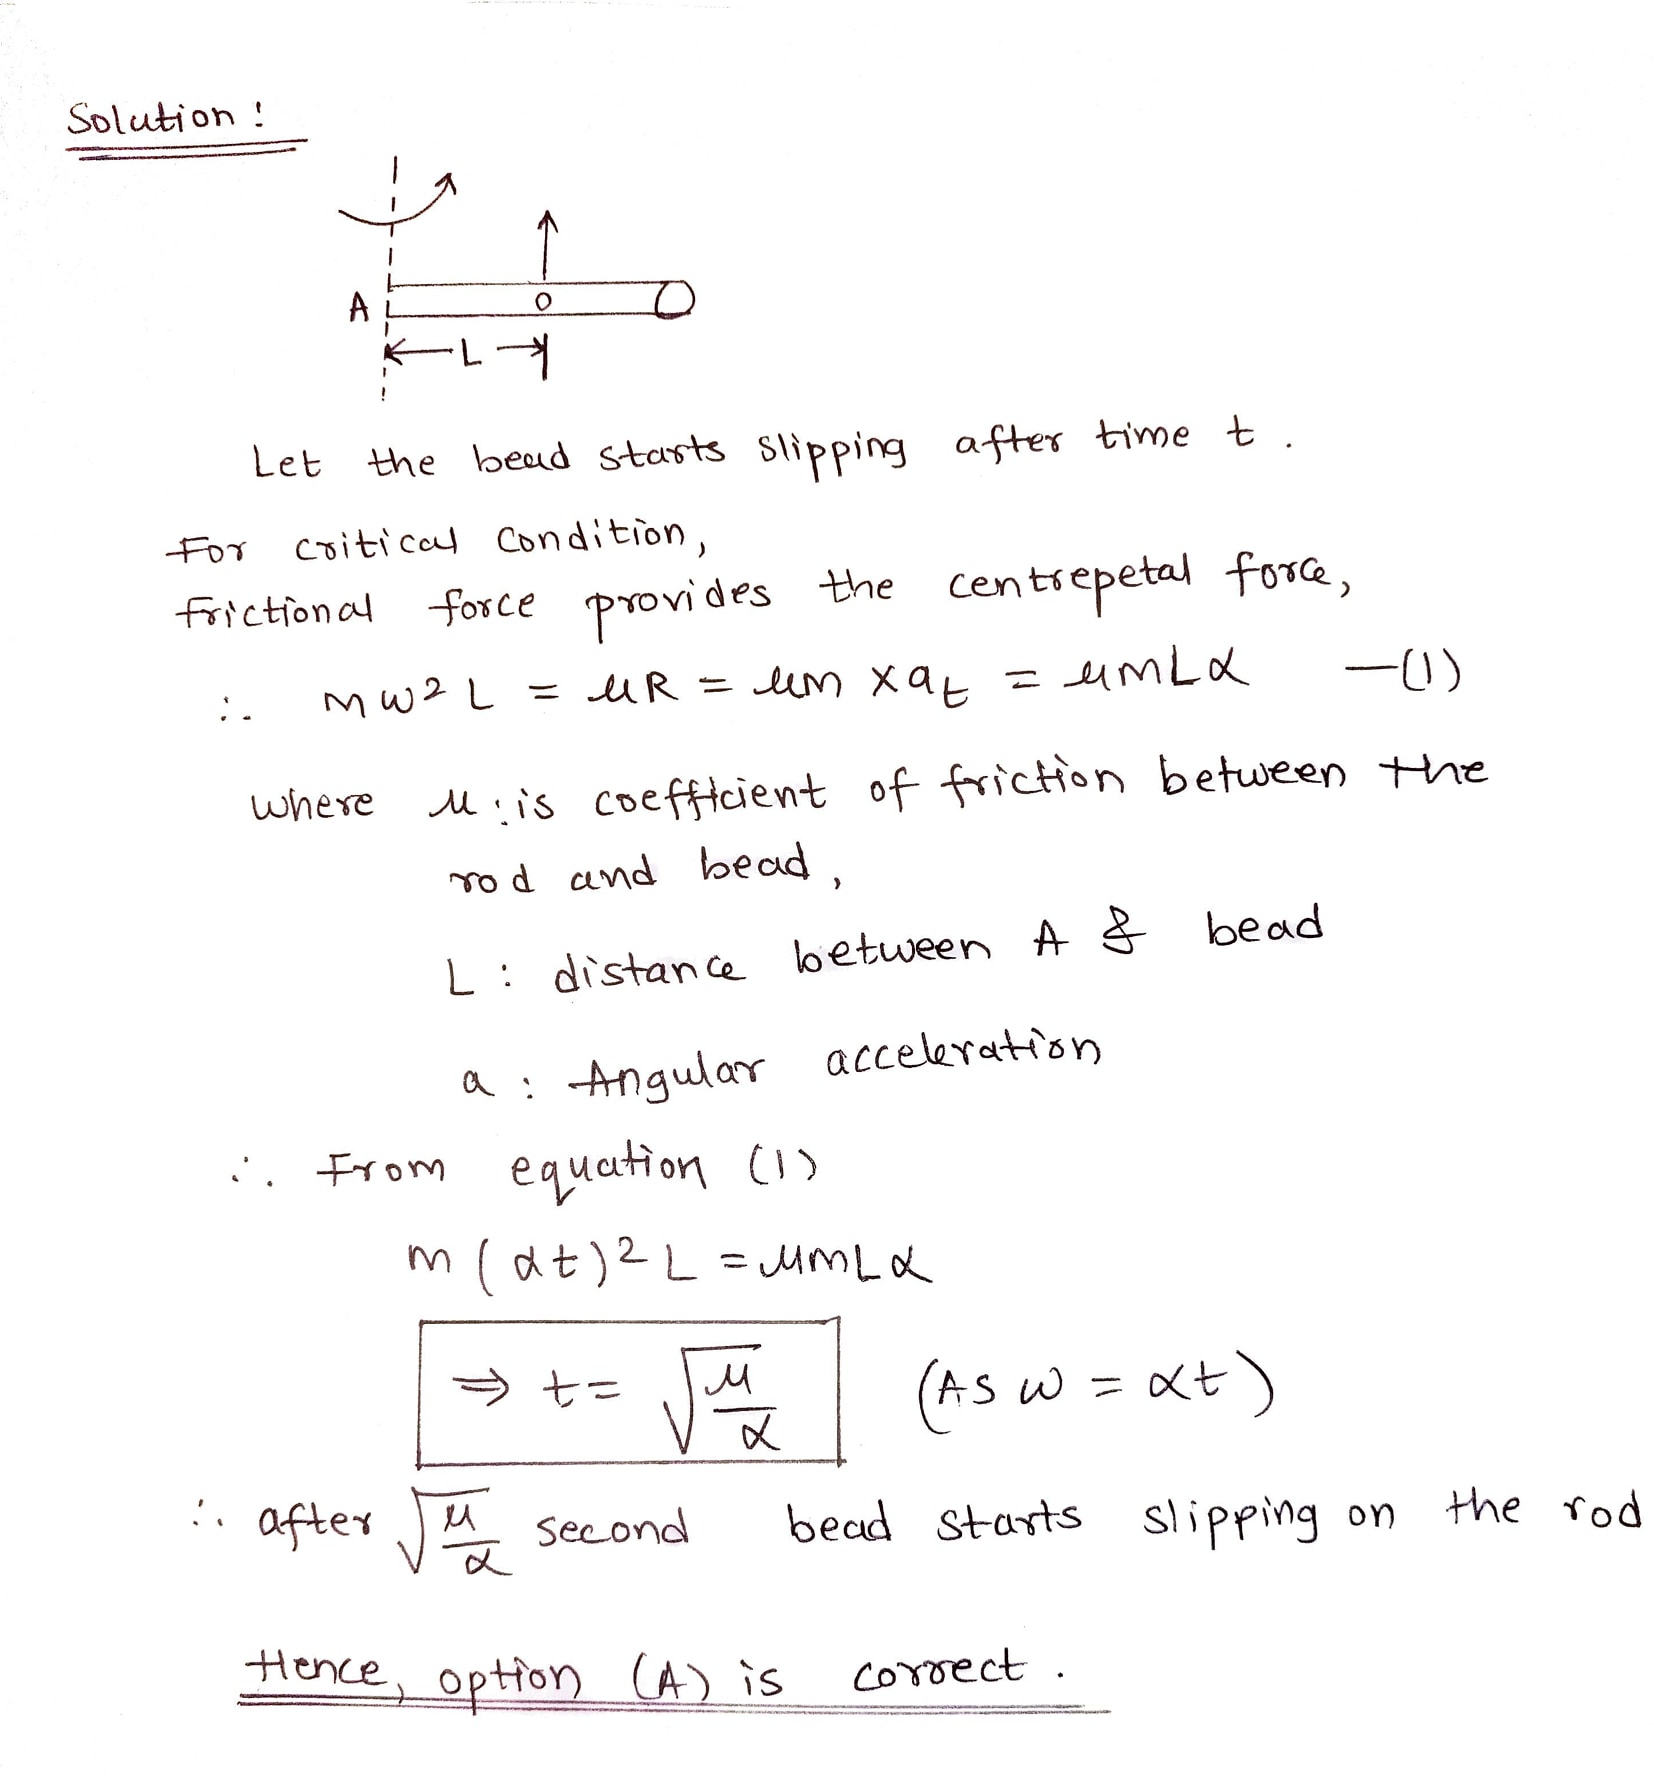 Solution :
A
O
L
Let the bead starts slipping after time t .
For critical condition,
frictional force provides the centrepetal force,
∴ mw²L = μR = μm x aₜ = μmLα —(1)
where μ : is coefficient of friction between the
rod and bead,
L : distance between A & bead
a : Angular acceleration
∴ From equation (1)
m(αt)²L = μmLα
⇒ t = √(μ/α) (As ω = αt)
∴ after √(μ/α) second bead starts slipping on the rod
Hence, option (A) is correct .